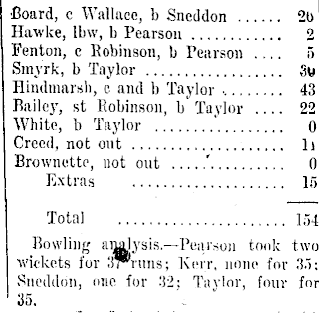 Board, c Wallace, b Sneddon ...... 20
Hawke, lbw, b Pearson ............ 2
Fenton, c Robinson, b Pearson .... 5
Smyrk, b Taylor .................. 30
Hindmarsh, c and b Taylor ........ 43
Bailey, st Robinson, b Taylor .... 22
White, b Taylor ................. 0
Creed, not out .................. 11
Brownette, not out .............. 0
Extras .................. 15
Total .................... 154
Bowling analysis.—Pearson took two
wickets for 37 runs; Kerr, none for 35;
Sneddon, one for 32; Taylor, four for
35.